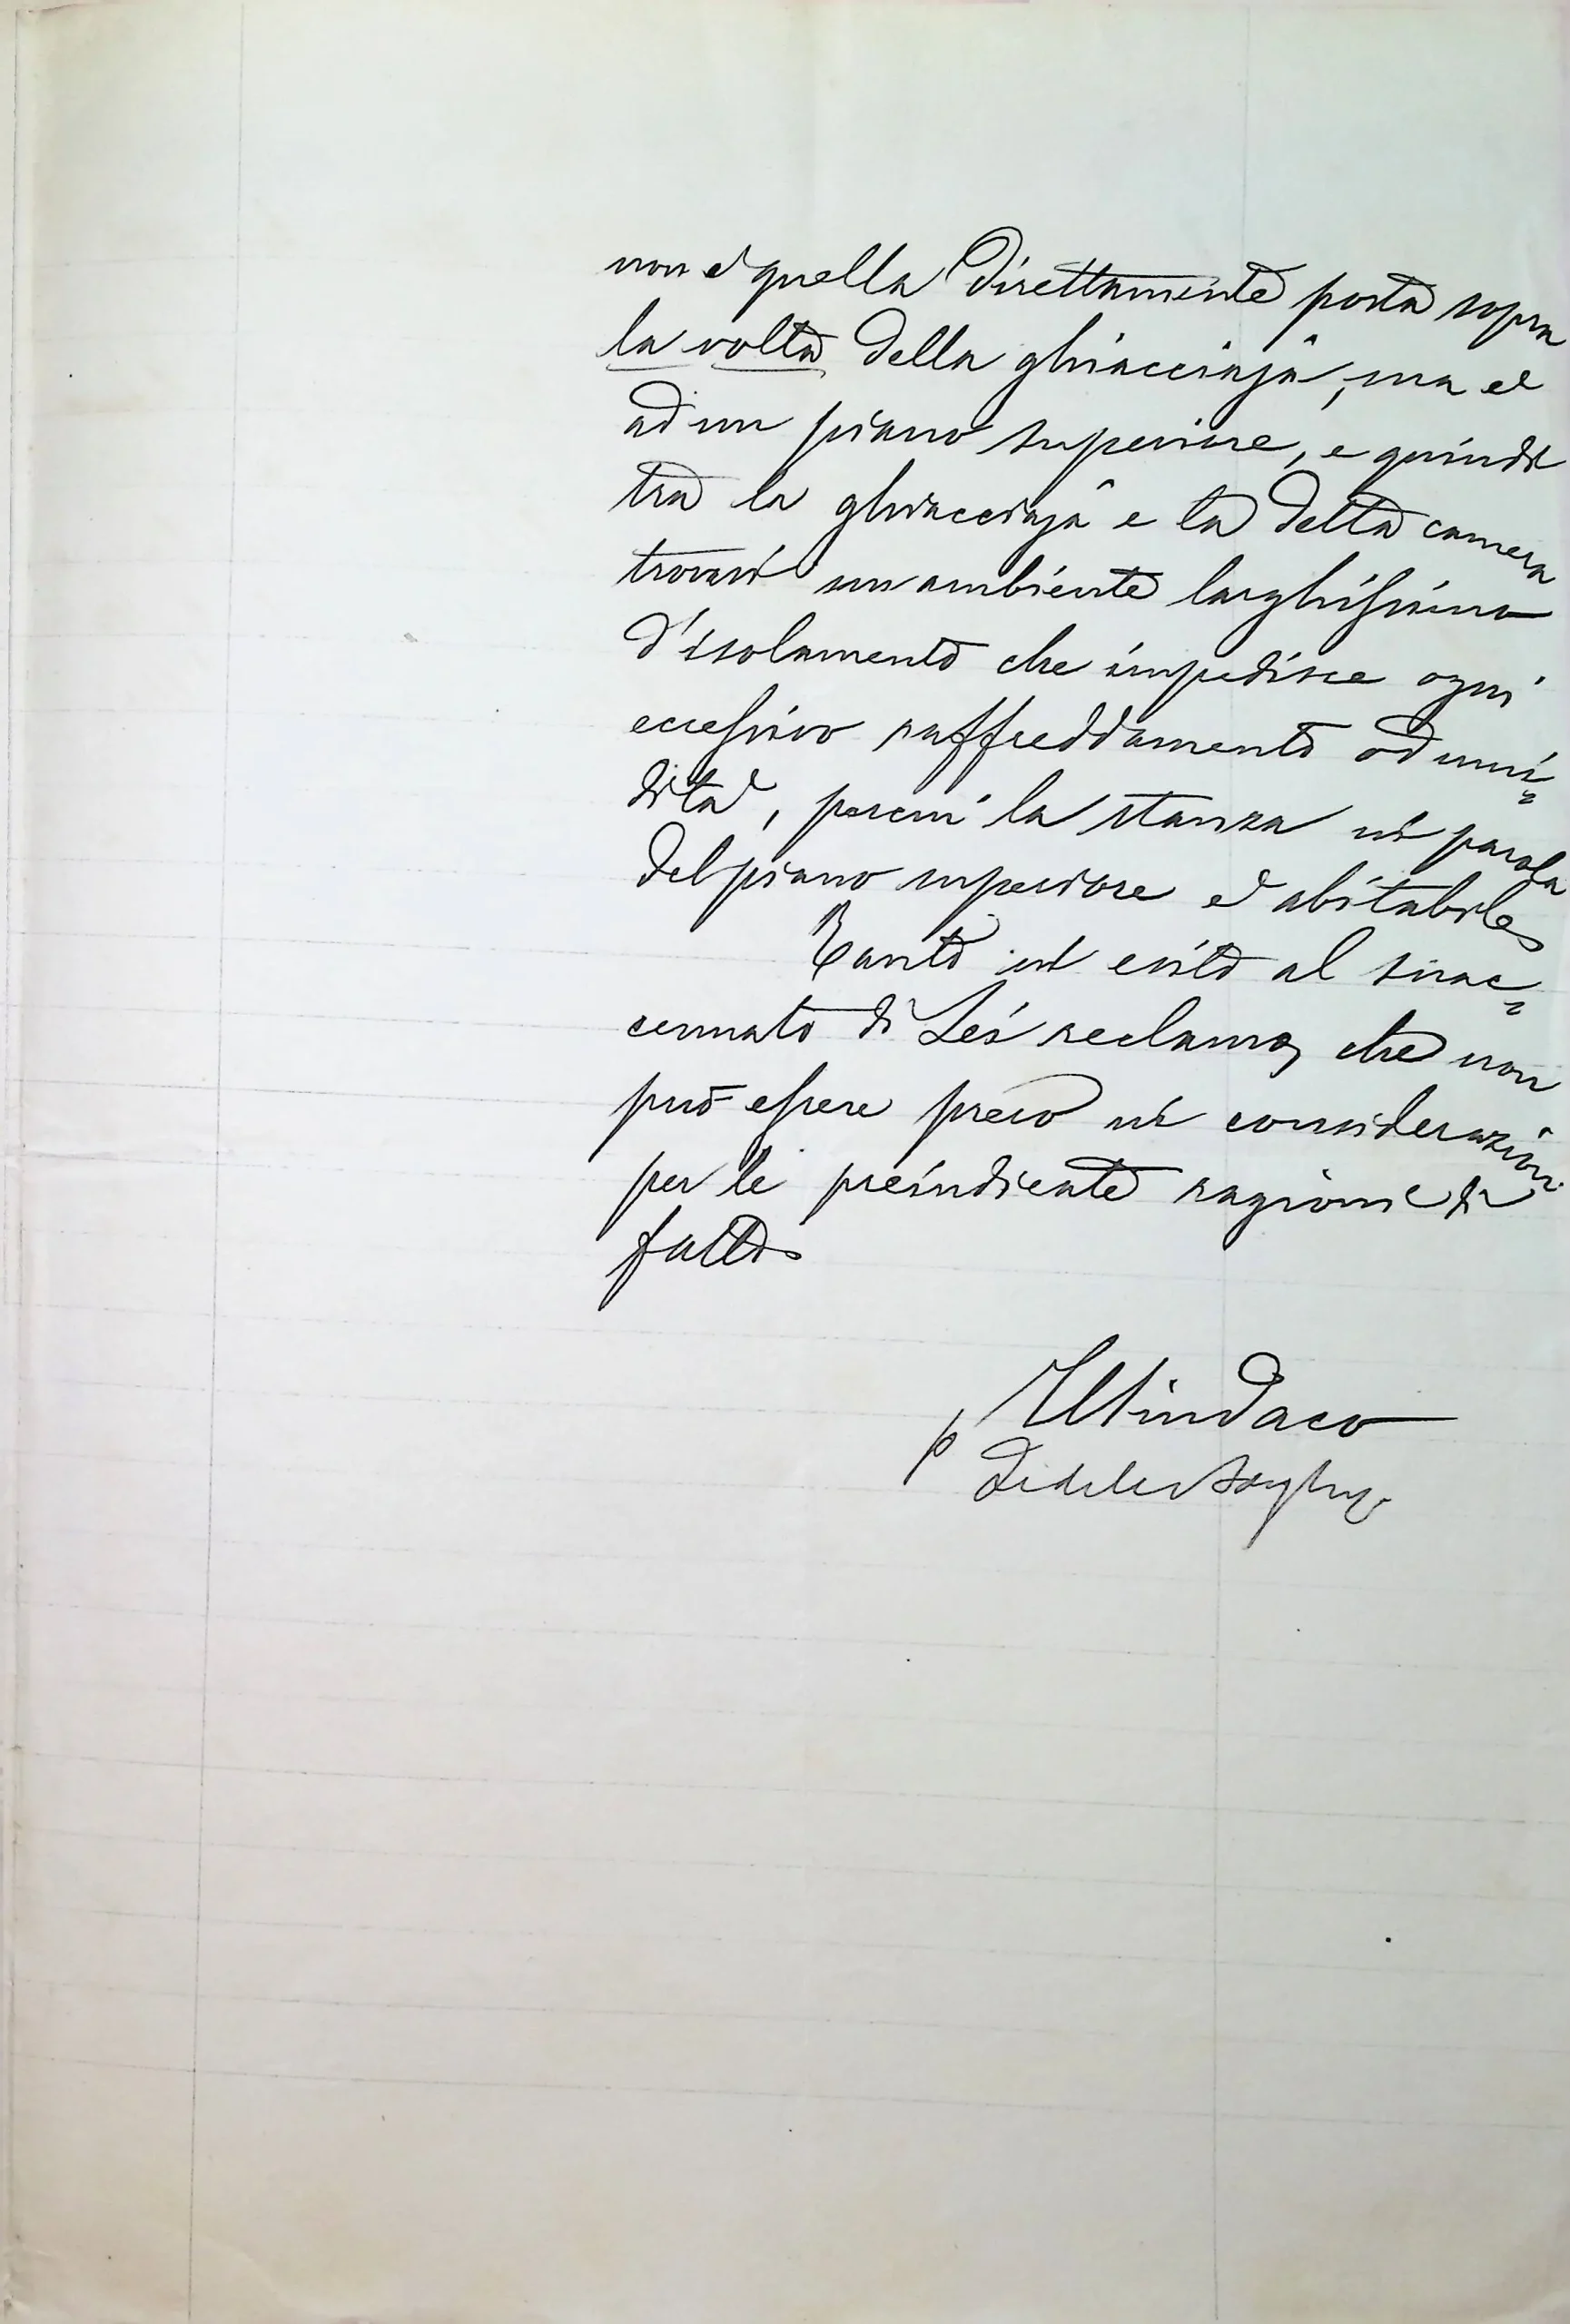 non è quella direttamente posta sopra
la volta della ghiacciaja, ma è
ad un piano superiore, e quindi
tra la ghiacciaja e la detta camera
trovasi un ambiente larghissimo
d'isolamento che impedisce ogni
eccessivo raffreddamento od umi=
dità, percui la stanza in parola
del piano superiore è abitabile.
Tanto in esito al sovrac=
cennato di Lei reclamo, che non
può essere preso in considerazione
per le preindicate ragioni di
fatto.
Il Sindaco
p